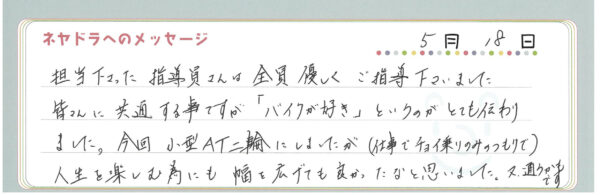 ネヤドラへのメッセージ
5月 18日
担当下さった 指導員さんは 全員 優しく ご指導下さいました
皆さんに 共通する事ですが「バイクが好き」というのが とても伝わり
ました。今回 小型AT二輪にしましたが (仕事でチョイ乗りのみのつもりで)
人生を楽しむ為にも 幅を広げても良かったなと思いました。又、通うかも
です